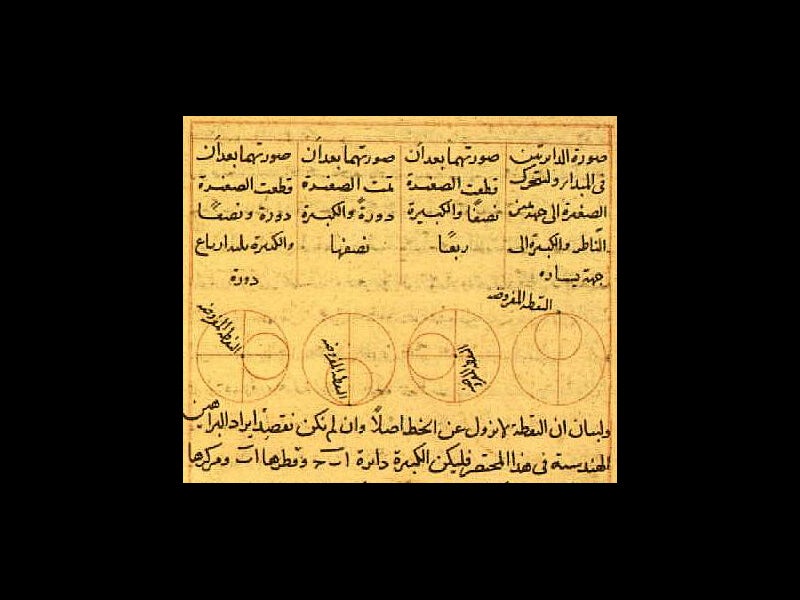 صورة الدائرتين
فى المبدا ولتتحرك
الصغيرة الى جهة يمين
الناظر والكبيرة الى
جهة يساره
صورتهما بعد أن
قطعت الصغيرة
نصفًا والكبيرة
ربعًا
صورتهما بعد أن
تمت الصغيرة
دورةً والكبيرة
نصفها
صورتهما بعد أن
قطعت الصغيرة
دورة ونصفًا
والكبيرة ثلثة ارباع
دورة
النقطة المفروضة
النقطة المفروضة
النقطة المفروضة
النقطة المفروضة
ولبيان ان النقطة لا تزول عن الخط اصلًا وان لم نكن نقصد ايراد البراهين
الهندسية فى هذا المختصر فليكن الكبيرة دائرة ا ب ج وقطرها ا ب ومركزها